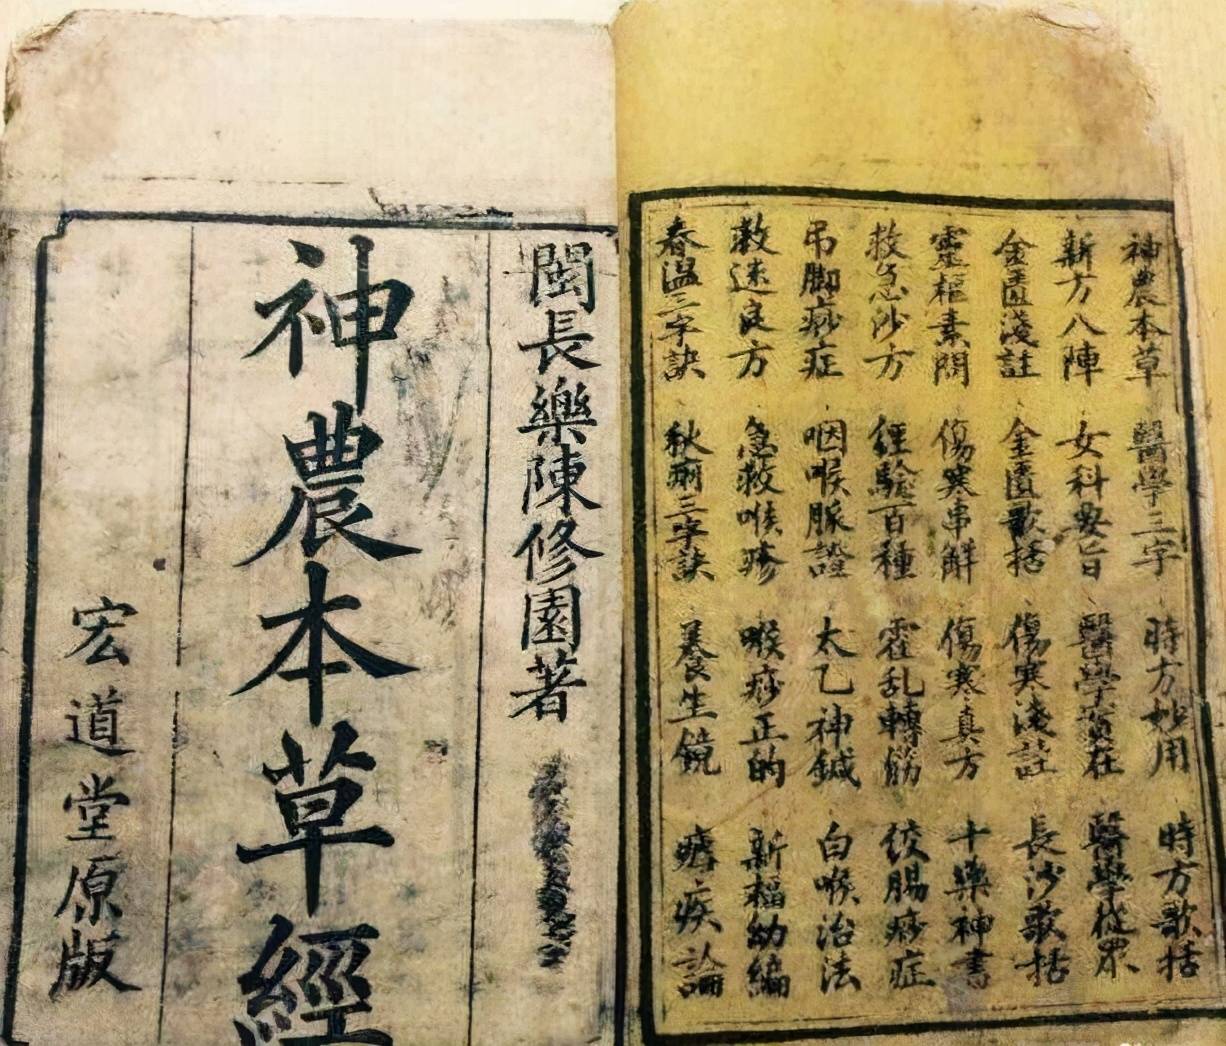 神農本草 醫學三字 時方妙用 時方歌括
新方八陣 女科要旨 醫學實在 醫學從眾
金匱淺註 金匱歌括 傷寒淺註 長沙歌括
靈樞素問 傷寒串解 傷寒真方 十藥神書
救急沙方 經驗百種 霍乱轉筋 絞腸痧症
吊脚痧症 咽喉脈證 太乙神鍼 白喉治法
救速良方 急救喉疹 喉痧正的 新福幼編
春温三字訣 秋痢三字訣 養生鏡 瘄疾論
閩長樂陳修園著
神農本草經
宏道堂原版